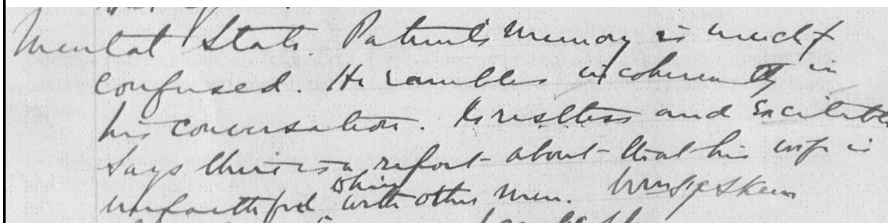 Mental State. Patient's memory is much
confused. He rambles incoherently in
his conversation. Is restless and excitable
Says there is a report about that his wife is
unfaithful to him with other men.